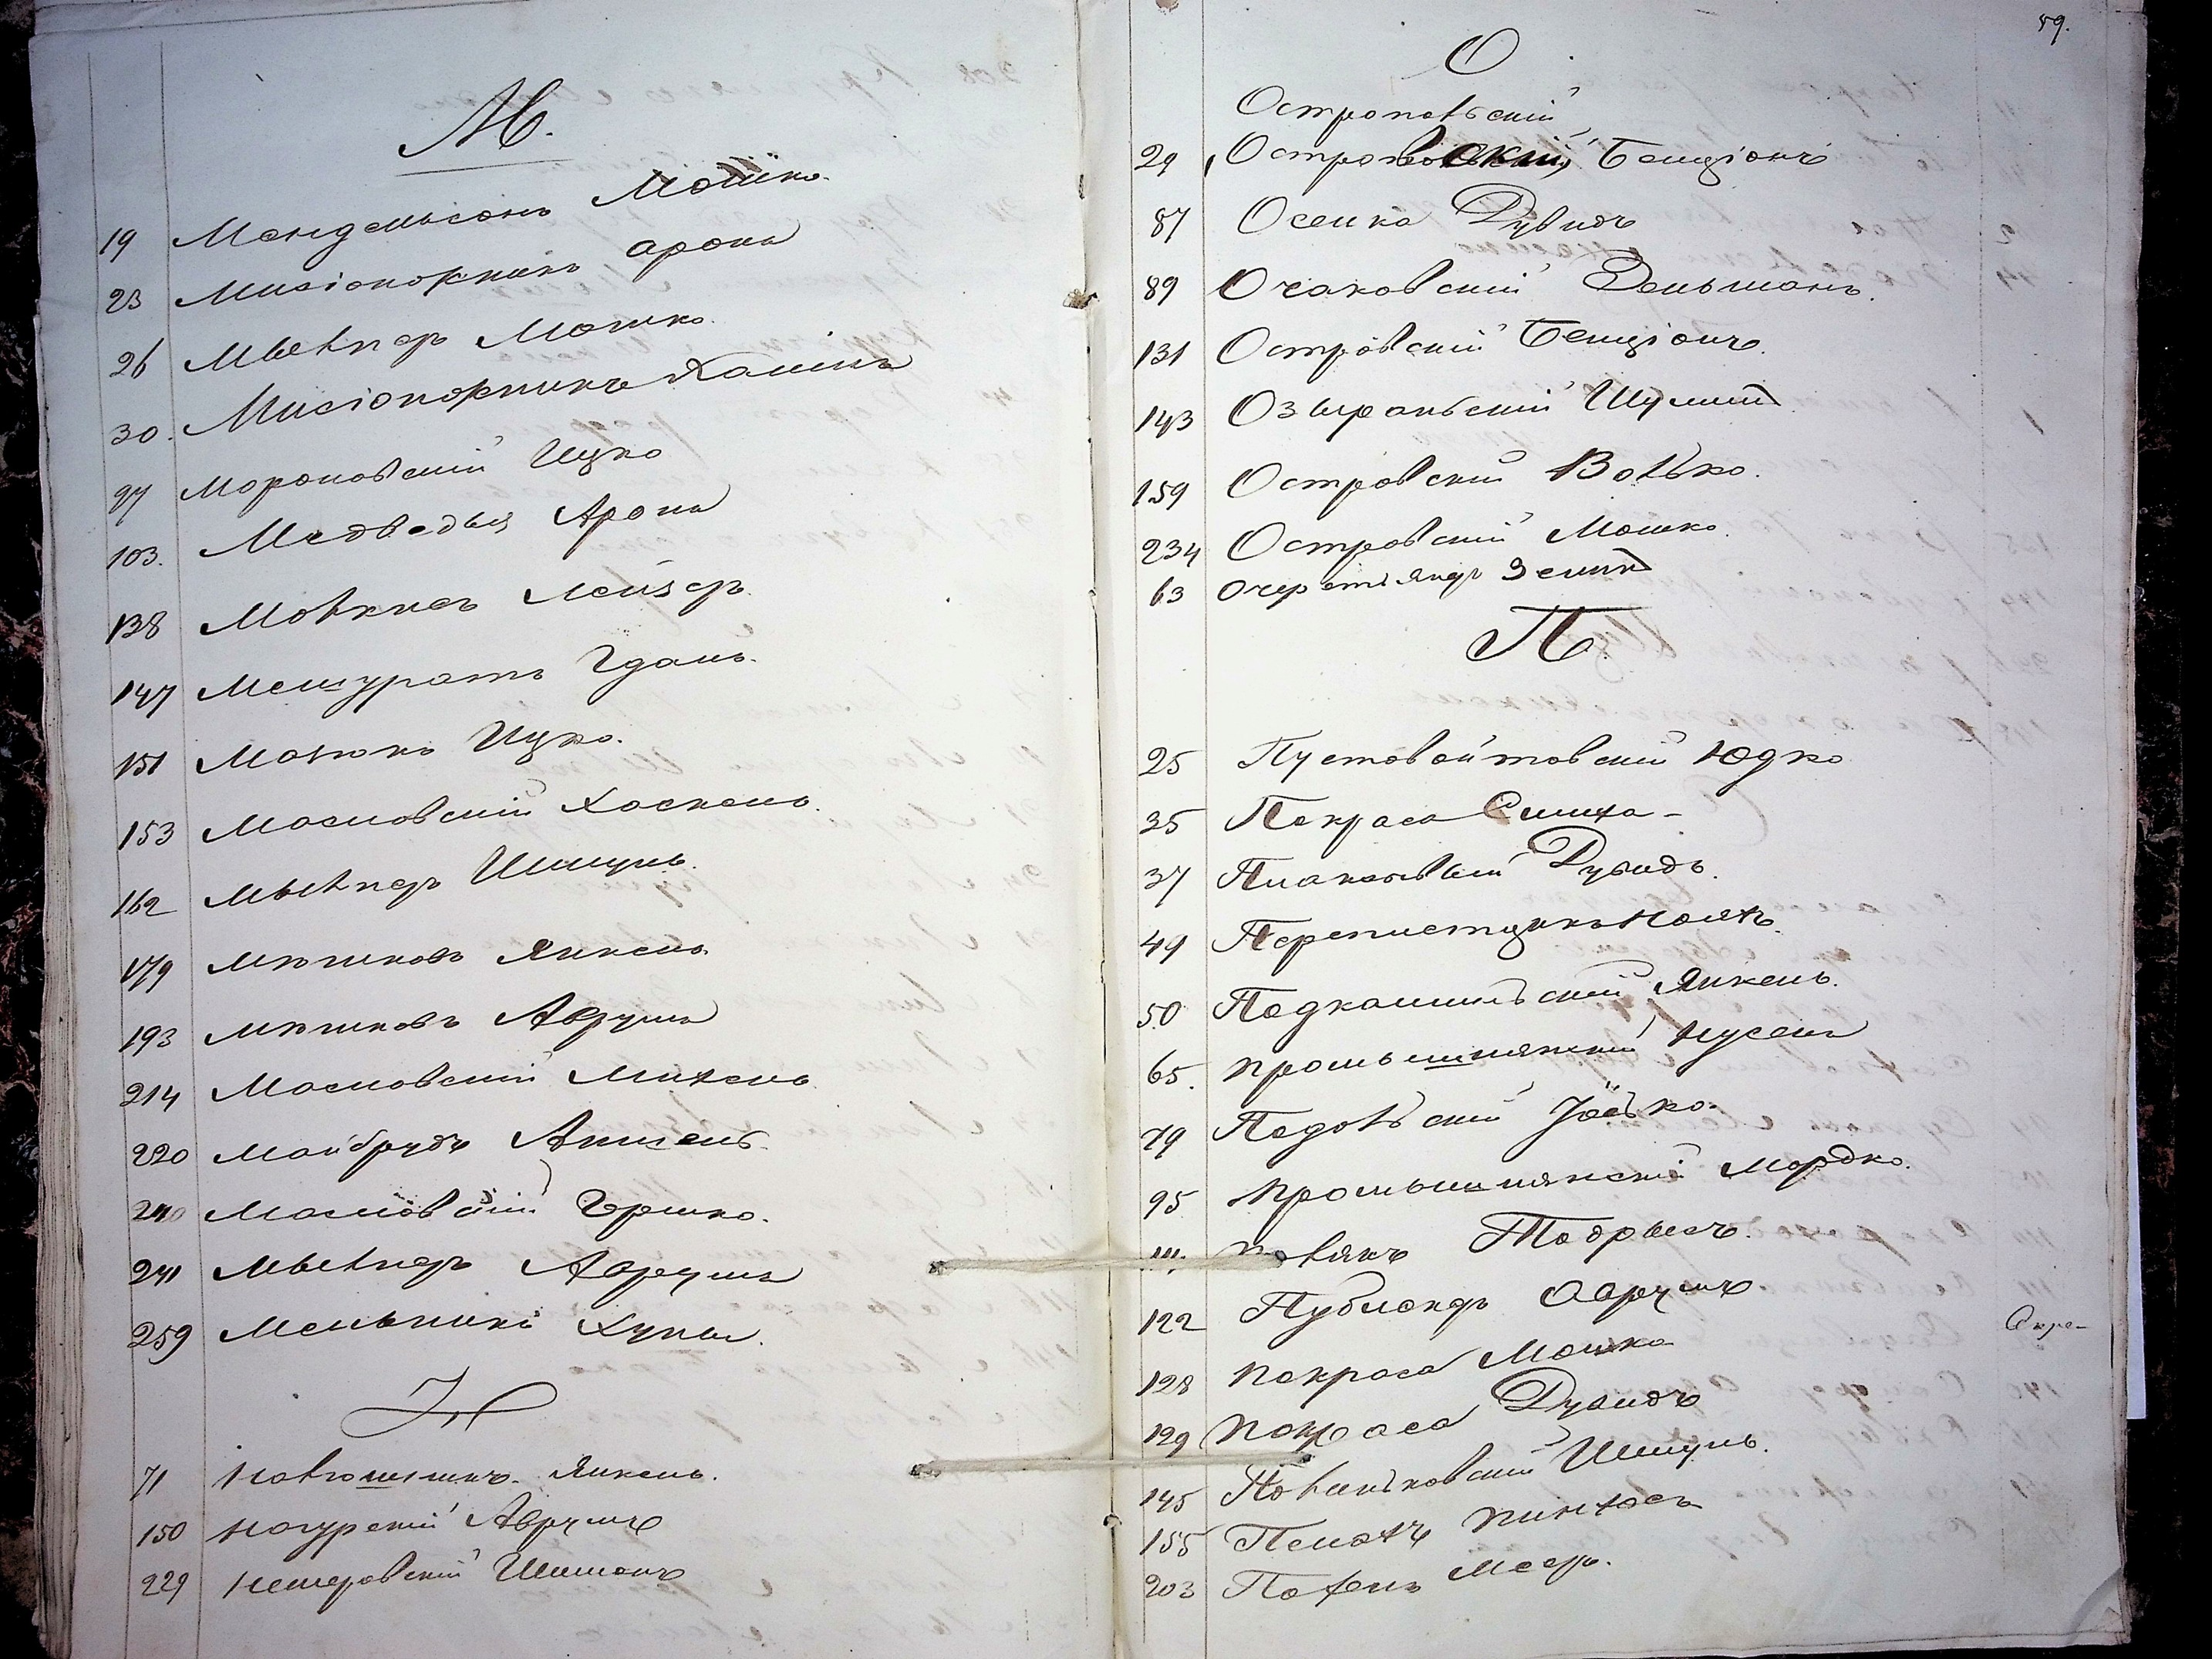 М.
19 Мендельсонъ Мошко.
23 Мисіонжникъ Аронъ
26 Мывперъ Мошко.
30. Мисіонжникъ Хаимъ
97 Мороновскій Ицко
103. Медведья Аронъ
138 Мовкисъ Лейзеръ.
147 Мешуратъ Гдаль.
151 Матюкъ Ицко.
153 Масловскій Хаскель.
162 Мывперъ Шмуль.
179 Мютниковъ Янкель.
193 Мютниковъ Аврумъ
214 Масловскій Михель
220 Майбрудъ Аншель.
240 Масловскій Гершко.
241 Мывперъ Аврумъ
259 Мельникъ Хуны.
Н
71 Невгомытнъ. Янкель.
150 Нагурскій Аврумъ
229 Немеровскій Шимонъ
59.
О
Островскій
29 Островскій Бенціонъ
87 Осенка Дувидъ
89 Очаковскій Зельманъ.
131 Островскій Бенціонъ.
143 Озыранскій Шулимъ
159 Островскій Волько.
234 Островскій Мошко.
63 Очеретянеръ Зеликъ
П.
25 Пустовойтовскій Юдко
35 Покраса Симха -
37 Дувидъ.
49 Переписчикъ Нояхъ.
50 Подкамильскій Янкель.
65. Промышлянскій Нусенъ
79 Подовскій Іосько.
95 Промышлянскій Мордко.
111. Повякъ Тодрысъ.
122 Публекеръ Аврумъ
Окре-
128 Покраса Мошко
129 Покраса Дувидъ
145 Шмуль.
155 Пелахъ Пинхасъ
203 Пахенъ Меэръ.